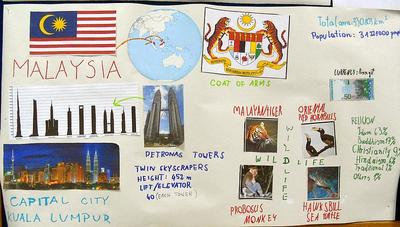 MALAYSIA
COAT OF ARMS
Population: 31 127 000 people
CURRENCY: Ringgit
50
PETRONAS TOWERS
TWIN SKYSCRAPERS
HEIGHT: 452 m
LIFT/ELEVATOR
40 (EACH TOWER)
CAPITAL CITY
KUALA LUMPUR
MALAYAN TIGER
ORIENTAL
PIED HORNBILLS
WILDLIFE
WILDLIFE
PROBOSUS
MONKEY
HAWKSBILL
SEA TURTLE
RELIGION
Islam 63%
Buddhism 19%
Christianity 9%
Hinduism 6%
Traditional 1%
Others